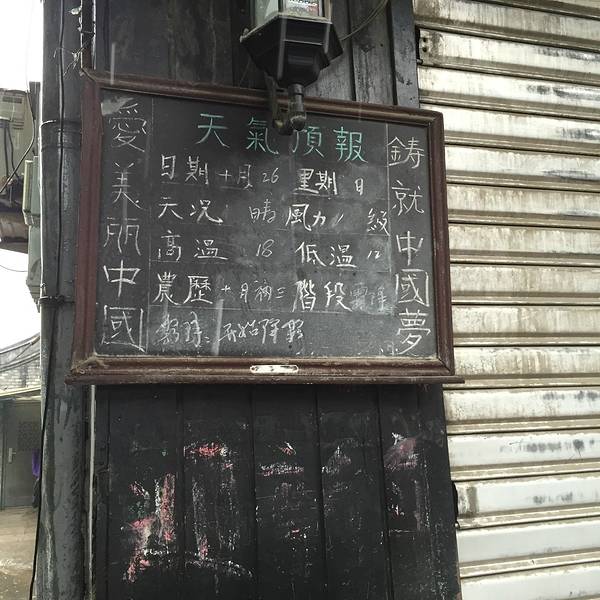 天氣預報
愛美丽中國
日期 十月 26 星期 日
天况 晴 風力 級
高温 18 低温 12
農歷 十月初三 階段
鑄就中國夢